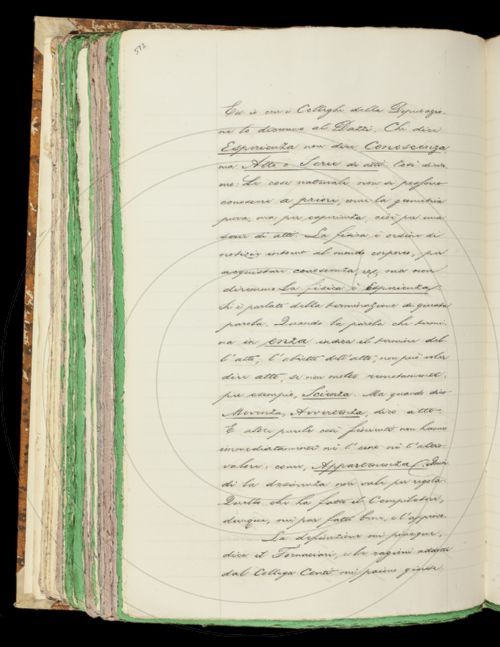 512
Ed io con i Colleghi della Deputazio-
ne lo dicemmo al Dazzi. Chi dice
Esperienza non dice Conoscenza
ma Atto o Serie di atti. Così dicia-
mo: Le cose naturali non si possono
conoscere a priori, come la geometria
pura, ma per esperienza, cioè per una
serie di atti. La fisica è ordine di
notizie intorno al mondo corporeo, per
acquistare conoscenza, ma non
diremmo La fisica è Esperienza.
Si è parlato della terminazione di questa
parola. Quando la parola che termi-
na in enza indica il termine del-
l'atto, l'obietto dell'atto, non può voler
dire atto, se non molto remotamente,
per esempio, Scienza. Ma quando dico
Movenza, Avvertenza, dico atto.
E altre parole così finienti non hanno
immediatamente nè l'uno nè l'altro
valore, come, Appartenenza. Quin-
di la desinenza non vale per regola.
Quello che ha fatto il Compilatore,
dunque, mi par fatto bene, e l'approvo.
La definizione mi piacque,
dice il Fornaciari, e le ragioni addotte
dal Collega Conti mi paiono giuste